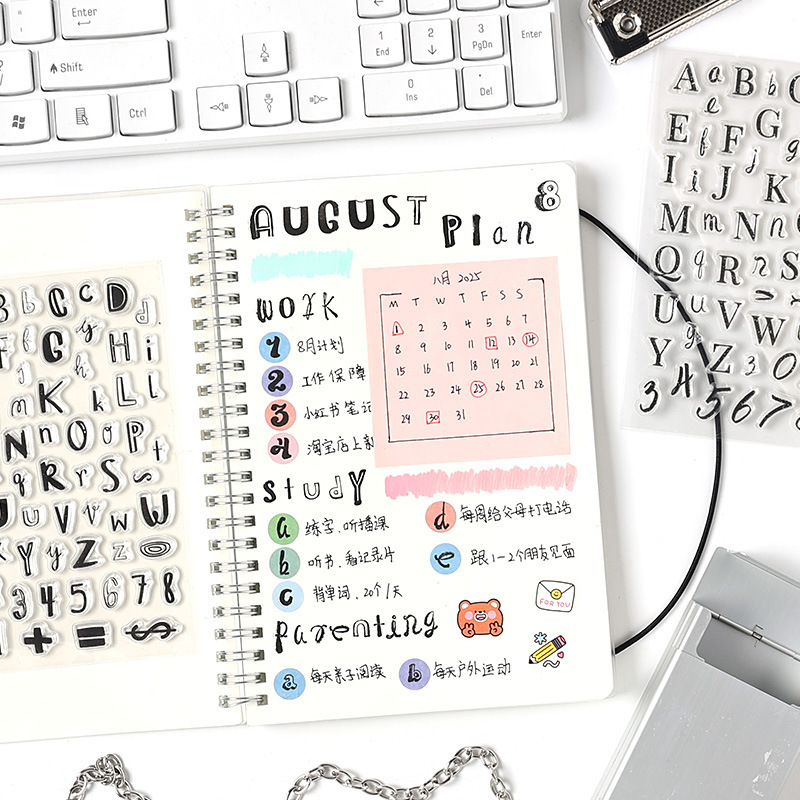 Enter
Shift
Ctrl
1
End
2
3
PgDn
Enter
0
Ins
Del
A a B b C
e
E f F G g
I i J j K
M m N n
Q q R r S
U u V v W
Y Z 3 0
3 4 5 6 7 8
B b C c D d
G g H i
m K k L l
N n O o P t
q R r S
U u V v w W
x Y y Z z
3 4 5 6 7 8
+ =
AUGUST Plan 8
八月 2025
M T W T F S S
1 2 3 4 5 6 7
8 9 10 11 12 13 14
15 16 17 18 19 20 21
22 23 24 25 26 27 28
29 30 31
WORK
1 8月计划
2 工作保障
3 小红书笔记
4 淘宝店上新
StudY
a 练字、听播课
b 听书、看记录片
c 背单词、20个/天
d 每周给父母打电话
e 跟1-2个朋友见面
FOR YOU
parenting
a 每天亲子阅读
b 每天户外运动